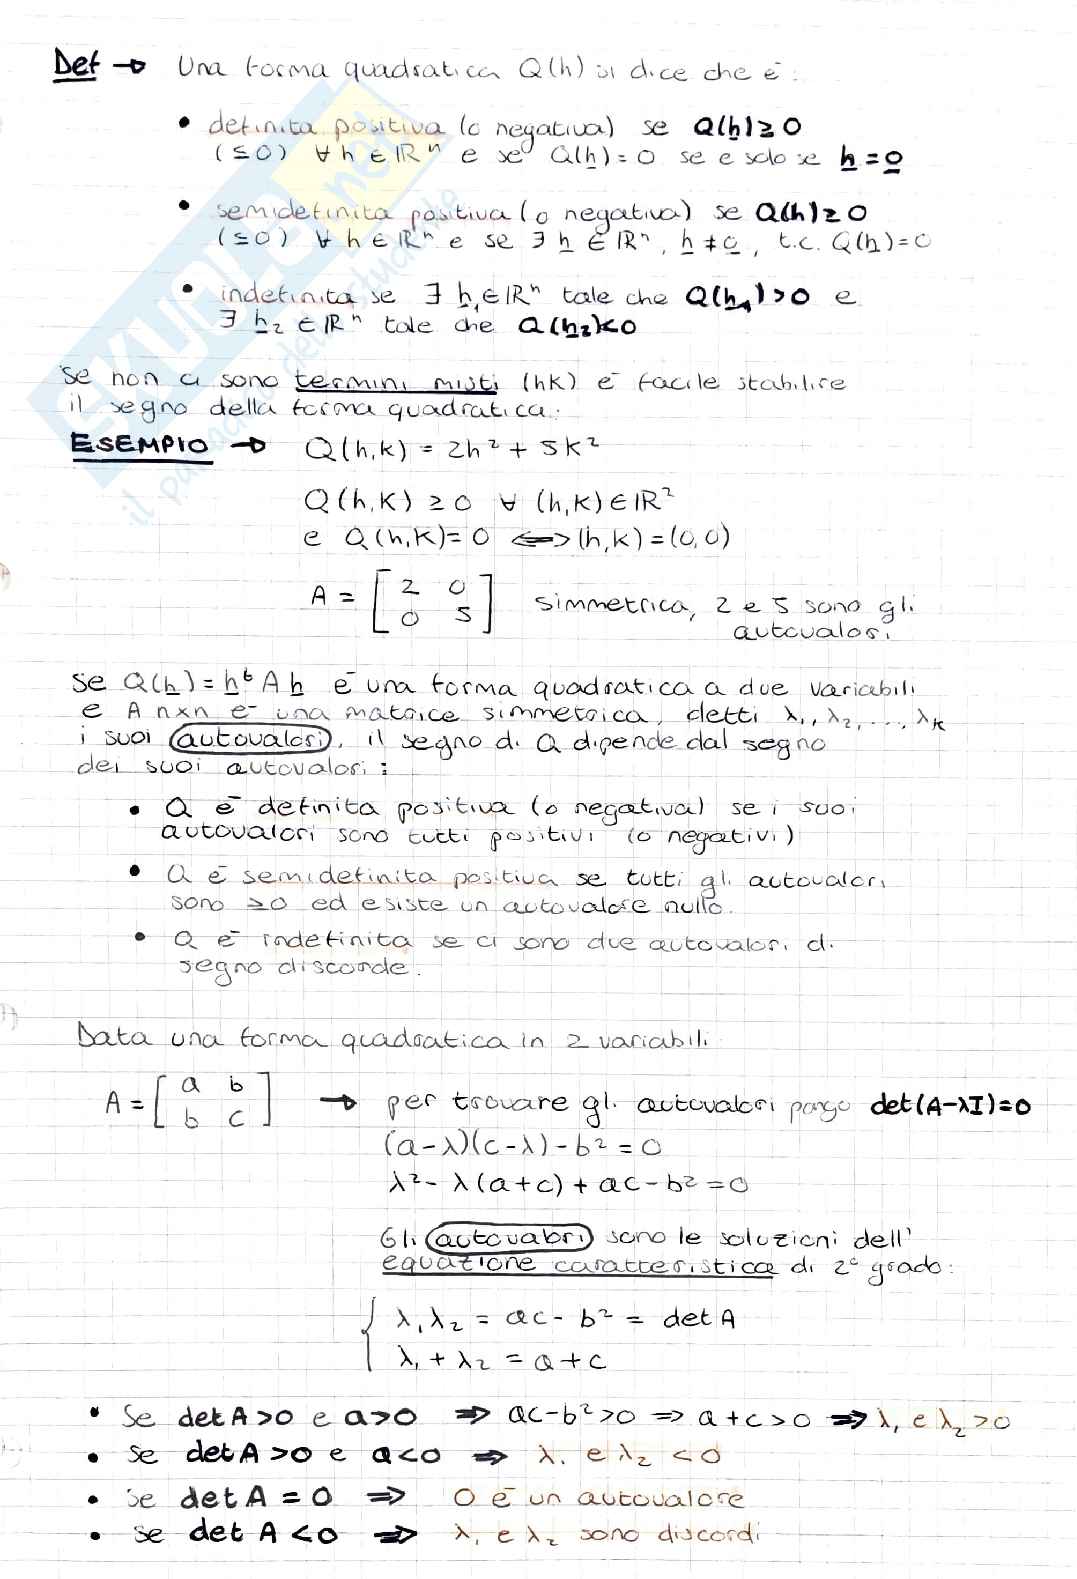 Def → Una forma quadratica Q(h) si dice che è:
• definita positiva (o negativa) se Q(h) ≥ 0
(≤0) ∀ h ∈ ℝⁿ e se Q(h) = 0 se e solo se h = 0
• semidefinita positiva (o negativa) se Q(h) ≥ 0
(≤0) ∀ h ∈ ℝⁿ e se ∃ h ∈ ℝⁿ, h ≠ 0, t.c. Q(h) = 0
• indefinita se ∃ h₁ ∈ ℝⁿ tale che Q(h₁) > 0 e
∃ h₂ ∈ ℝⁿ tale che Q(h₂) < 0
Se non ci sono termini misti (hk) è facile stabilire
il segno della forma quadratica.
ESEMPIO → Q(h,k) = 2h² + 5k²
Q(h,k) ≥ 0 ∀ (h,k) ∈ ℝ²
e Q(h,k) = 0 ⟺ (h,k) = (0,0)
A = [2 0
0 5] simmetrica, 2 e 5 sono gli
autovalori
Se Q(h) = hᵗ A h è una forma quadratica a due variabili
e A n×n è una matrice simmetrica, detti λ₁, λ₂, ..., λₖ
i suoi autovalori, il segno di Q dipende dal segno
dei suoi autovalori:
• Q è definita positiva (o negativa) se i suoi
autovalori sono tutti positivi (o negativi)
• Q è semidefinita positiva se tutti gli autovalori
sono ≥0 ed esiste un autovalore nullo.
• Q è indefinita se ci sono due autovalori di
segno discorde.
Data una forma quadratica in 2 variabili
A = [a b
b c] → per trovare gli autovalori pongo det(A-λI)=0
(a-λ)(c-λ) - b² = 0
λ² - λ(a+c) + ac - b² = 0
Gli autovalori sono le soluzioni dell'
equazione caratteristica di 2° grado:
{ λ₁λ₂ = ac - b² = det A
λ₁ + λ₂ = a + c
• Se det A > 0 e a > 0 ⇒ ac-b² > 0 ⇒ a+c > 0 ⇒ λ₁ e λ₂ > 0
• Se det A > 0 e a < 0 ⇒ λ₁ e λ₂ < 0
• Se det A = 0 ⇒ 0 è un autovalore
• Se det A < 0 ⇒ λ₁ e λ₂ sono discordi
SKUOLA.net